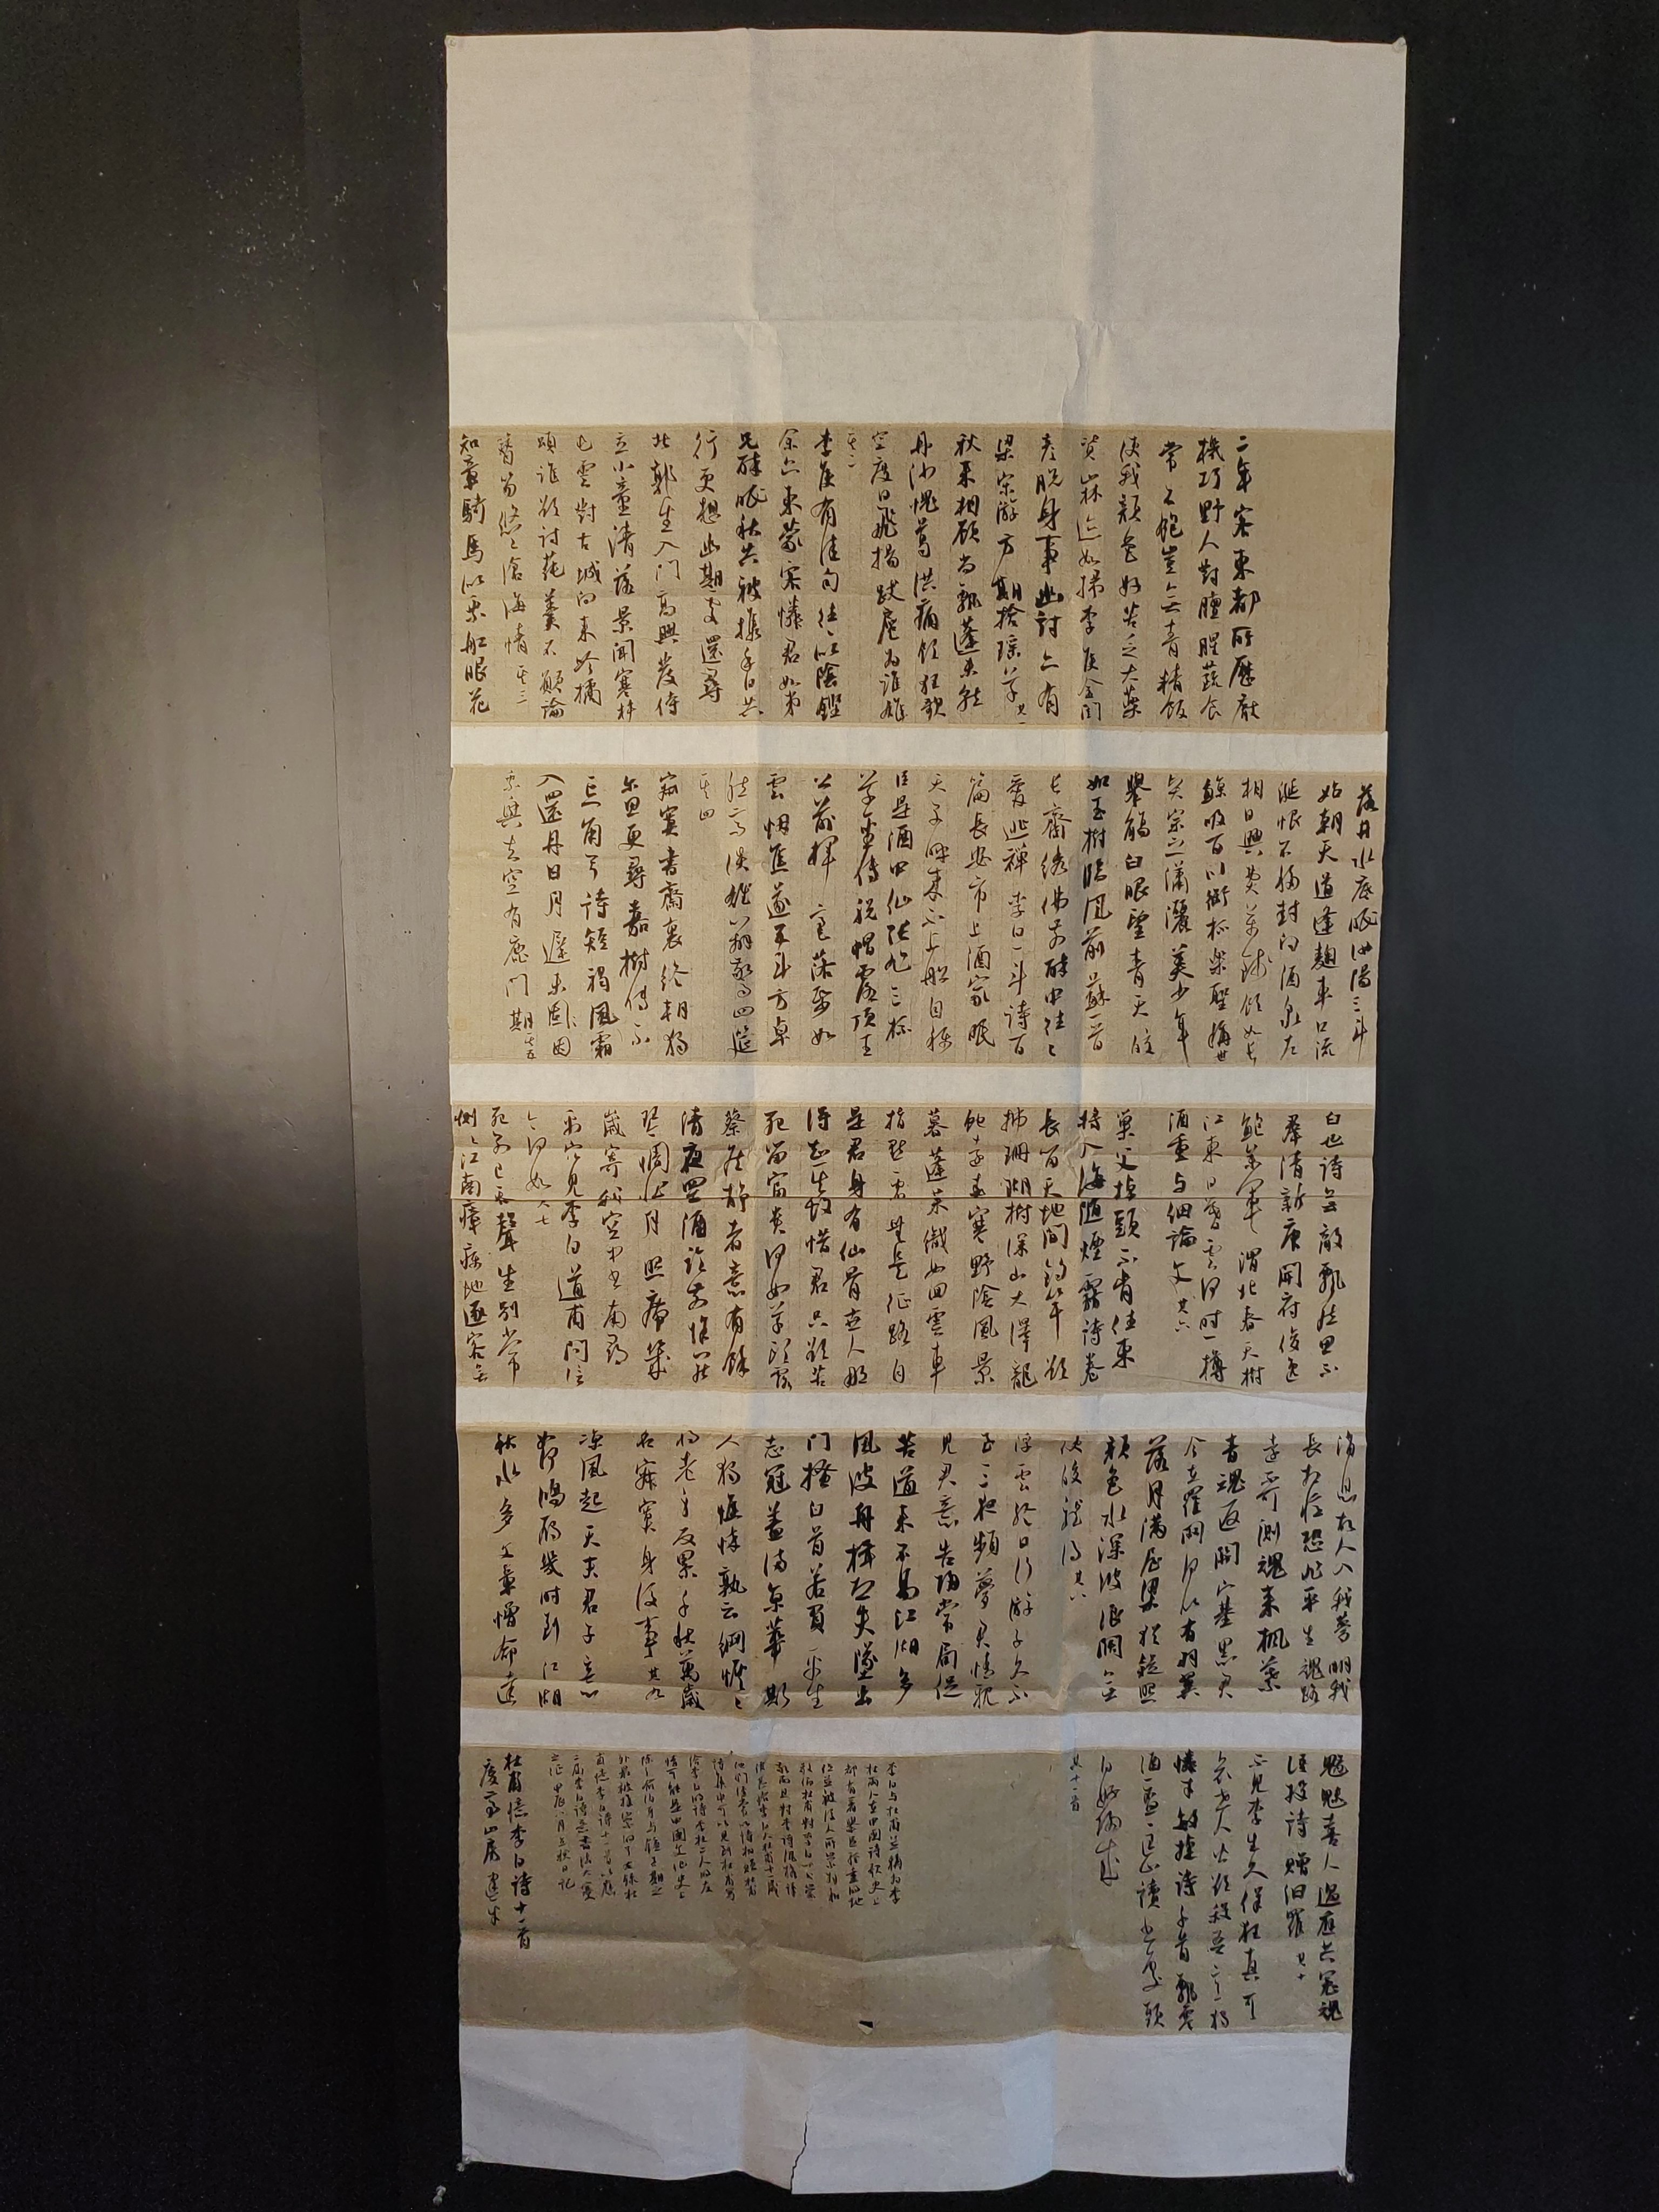 二年客東都所歷厭
機巧野人對膻腥蔬食
常不飽豈無青精飯
使我顏色好苦乏大藥
資山林迹如掃李侯金閨
彥脫身事幽討亦有
梁宋游方期拾瑤草 其一
秋來相顧尚飄蓬未就
丹沙愧葛洪痛飲狂歌
空度日飛揚跋扈為誰雄
其二
李侯有佳句往往似陰鏗
余亦東蒙客憐君如弟
兄醉眠秋共被攜手日共
行更想幽期處還尋
北郭生入門高興發侍
立小童清落景聞寒杵
屯雲對古城向來吟橘
頌誰欲討蒓羹不願論
簪笏悠悠滄海情 其三
知章騎馬似乘船眼花
落井水底眠汝陽三斗
始朝天道逢麴車口流
涎恨不移封向酒泉左
相日興費萬錢飲如長
鯨吸百川銜杯樂聖稱世
賢宗之瀟灑美少年
舉觴白眼望青天皎
如玉樹臨風前蘇晉
長齋繡佛前醉中往往
愛逃禪李白一斗詩百
篇長安市上酒家眠
天子呼來不上船自稱
臣是酒中仙張旭三杯
草聖傳脫帽露頂王
公前揮毫落紙如
雲烟焦遂五斗方卓
然高談雄辯驚四筵
其四
寂寞書齋裏終朝獨
爾思更尋嘉樹傳不
忘角弓詩短褐風霜
入還丹日月遲未因
乘興去空有鹿門期 其五
白也詩無敵飄然思不
群清新庾開府俊逸
鮑參軍渭北春天樹
江東日暮雲何時一樽
酒重與細論文 其六
巢父掉頭不肯住東
將入海隨煙霧詩卷
長留天地間釣竿欲
拂珊瑚樹深山大澤龍
蛇遠春寒野陰風景
暮蓬萊織女回雲車
指點虛無是征路自
是君身有仙骨世人那
得知其故惜君只欲苦
死留富貴何如草頭露
蔡侯靜者意有餘
清夜置酒臨前除罷
琴惆悵月照席幾
歲寄我空中書南尋
禹穴見李白道甫問信
今何如 其七
死別已吞聲生別常
惻惻江南瘴癘地逐客無
消息故人入我夢明我
長相憶恐非平生魂路
遠不可測魂來楓葉
青魂返關塞黑君
今在羅網何以有羽翼
落月滿屋梁猶疑照
顏色水深波浪闊無
使蛟龍得 其八
浮雲終日行游子久不
至三夜頻夢君情親
見君意告歸常局促
苦道來不易江湖多
風波舟楫恐失墜出
門搔白首若負平生
志冠蓋滿京華斯
人獨憔悴孰云網恢恢
將老身反累千秋萬歲
名寂寞身後事 其九
涼風起天末君子意如
何鴻雁幾時到江湖
秋水多文章憎命達
魑魅喜人過應共冤魂
語投詩贈汨羅 其十
不見李生久佯狂真可
哀世人皆欲殺吾意獨
憐才敏捷詩千首飄零
酒一杯匡山讀書處頭
白好歸來
其十一首
李白與杜甫並稱為李
杜兩人在中國詩歌史上
都有着舉足輕重的地
位並被後人所崇拜和
敬仰杜甫對李白
杜甫憶李白詩十一首